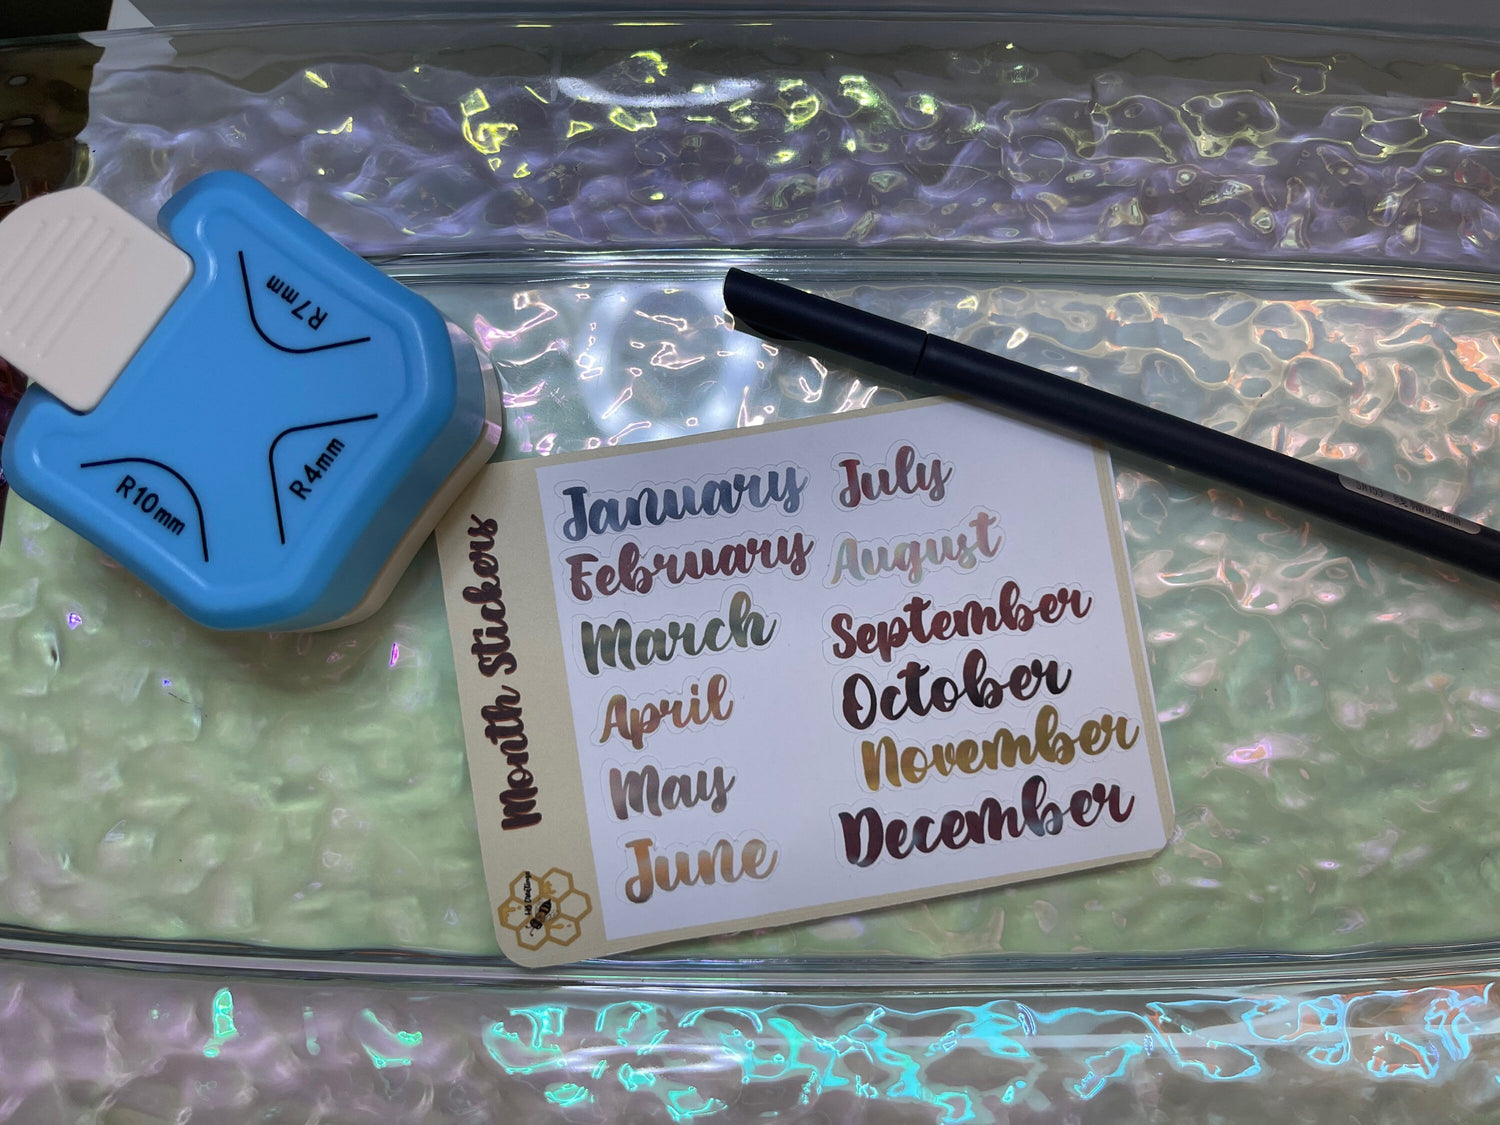 R7mm
R4mm
R10mm
Month Stickers
January
February
March
April
May
June
July
August
September
October
November
December